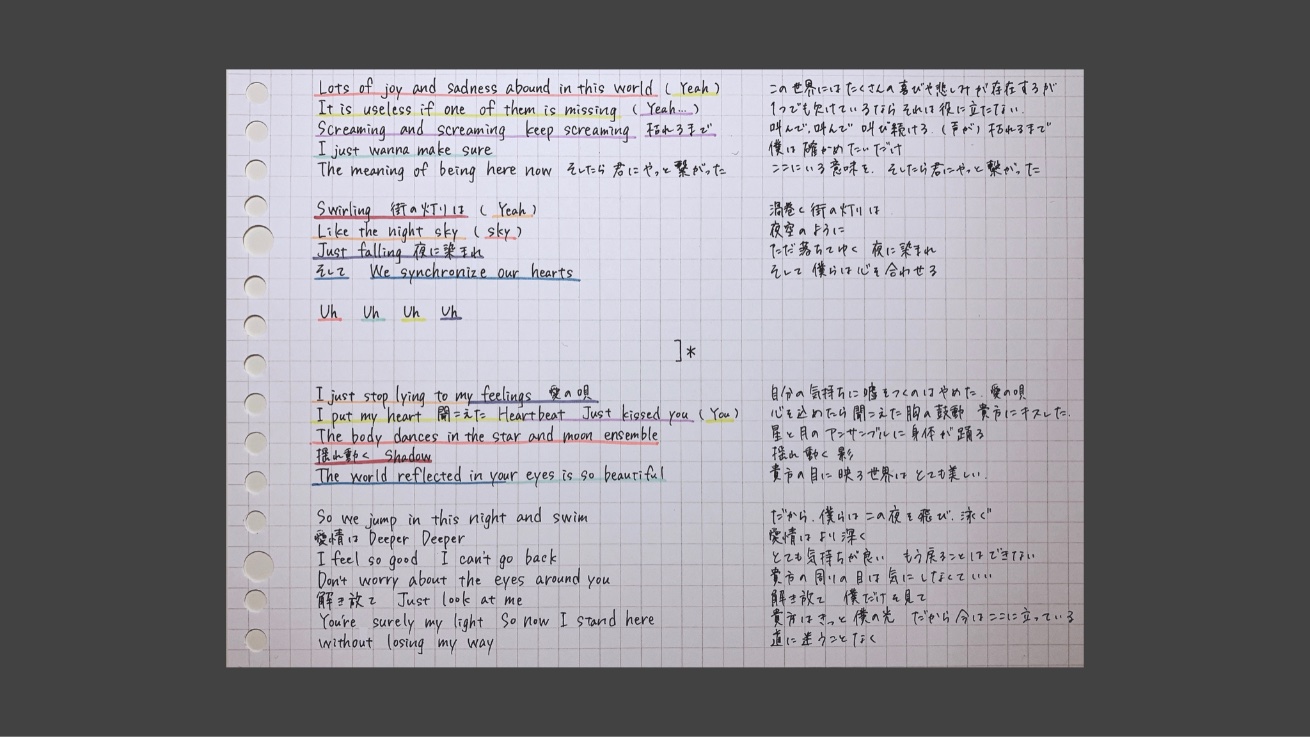 Lots of joy and sadness abound in this world ( Yeah )
It is useless if one of them is missing ( Yeah... )
Screaming and screaming keep screaming 枯れるまで
I just wanna make sure
The meaning of being here now そしたら君にやっと繋がった
Swirling 街の灯りは ( Yeah )
Like the night sky ( sky )
Just falling 夜に染まれ
そして We synchronize our hearts
Uh Uh Uh Uh
]*
I just stop lying to my feelings 愛の唄
I put my heart 聞こえた Heartbeat Just kissed you ( You )
The body dances in the star and moon ensemble
揺れ動く Shadow
The world reflected in your eyes is so beautiful
So we jump in this night and swim
愛情は Deeper Deeper
I feel so good I can't go back
Don't worry about the eyes around you
解き放て Just look at me
You're surely my light So now I stand here
without losing my way
この世界にはたくさんの喜びや悲しみが存在するが
1つでも欠けているならそれは役に立たない.
叫んで.叫んで 叫び続ける.(声が)枯れるまで
僕は確かめたいだけ
ここにいる意味を. そしたら君にやっと繋がった
渦巻く街の灯りは
夜空のように
ただ落ちてゆく 夜に染まれ
そして僕らは心を合わせる
自分の気持ちに嘘をつくのはやめた. 愛の唄
心を込めたら聞こえた胸の鼓動 貴方にキスした.
星と月のアンサンブルに身体が踊る
揺れ動く影
貴方の目に映る世界はとても美しい.
だから.僕らはこの夜を飛び.泳ぐ
愛情はより深く
とても気持ちが良い もう戻ることはできない
貴方の周りの目は気にしなくていい
解き放て 僕だけを見て
貴方はきっと僕の光 だから今はここに立っている
道に迷うことなく